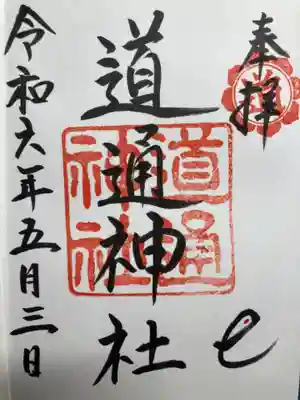 奉拝
道通神社
道通
神社
令和六年五月三日